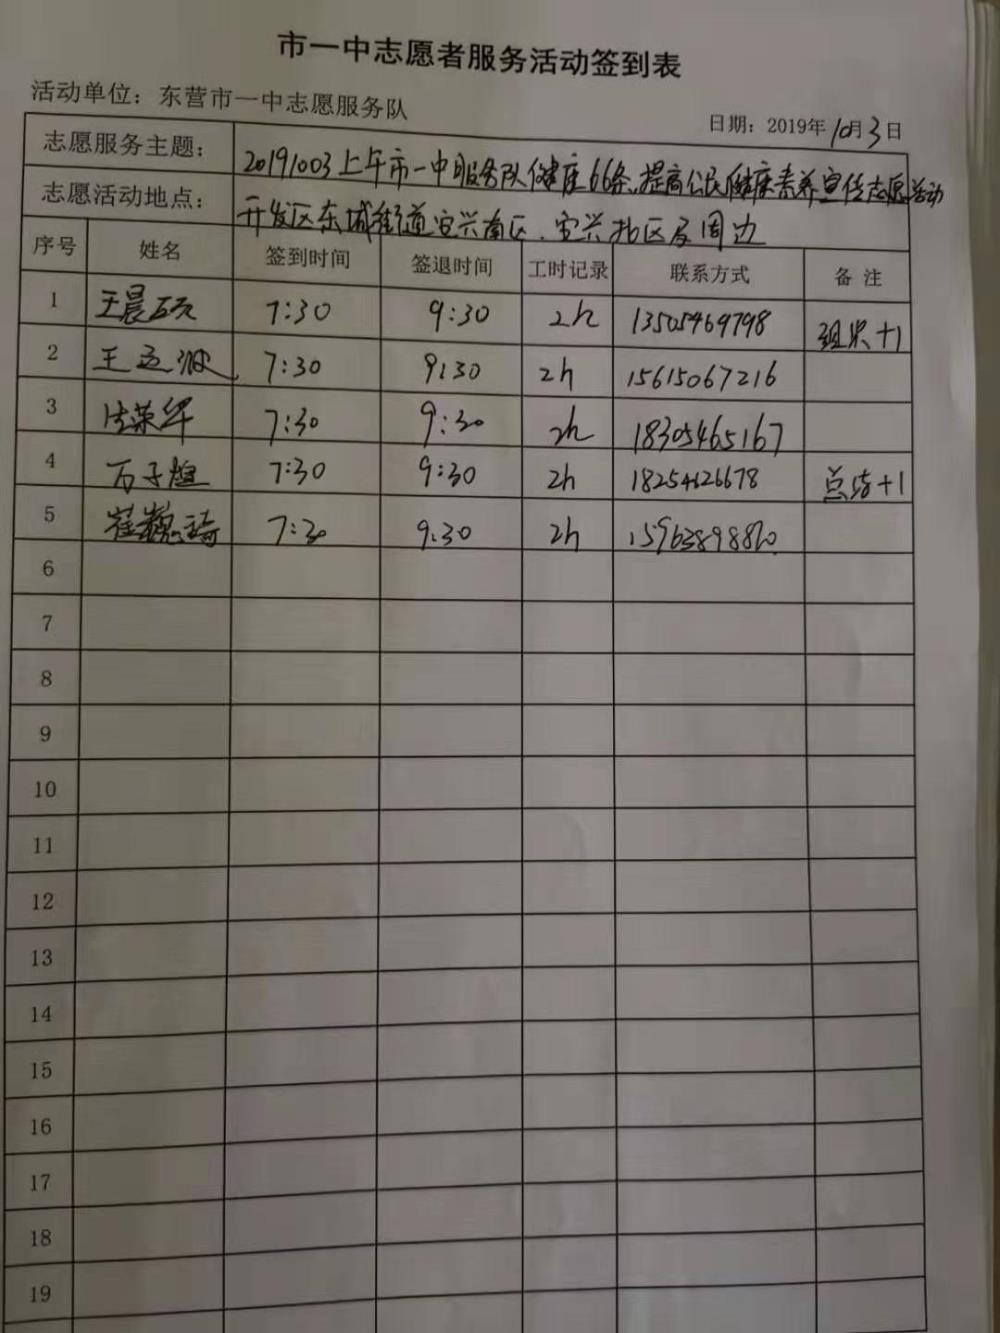 市一中志愿者服务活动签到表
活动单位：东营市一中志愿服务队
日期：2019年10月3日
志愿服务主题： 20191003上午市一中服务队健康66条，提高公民健康素养宣传志愿活动
志愿活动地点： 开发区东城街道宜兴南区、宜兴北区及周边
序号 姓名 签到时间 签退时间 工时记录 联系方式 备 注
1 王晨硕 7:30 9:30 2h 13505469798 组织+1
2 王 7:30 9:30 2h 15615067216
3 荣华 7:30 9:30 2h 18305465167
4 万子煊 7:30 9:30 2h 18254626678 总结+1
5 崔巍琦 7:30 9:30 2h
6
7
8
9
10
11
12
13
14
15
16
17
18
19